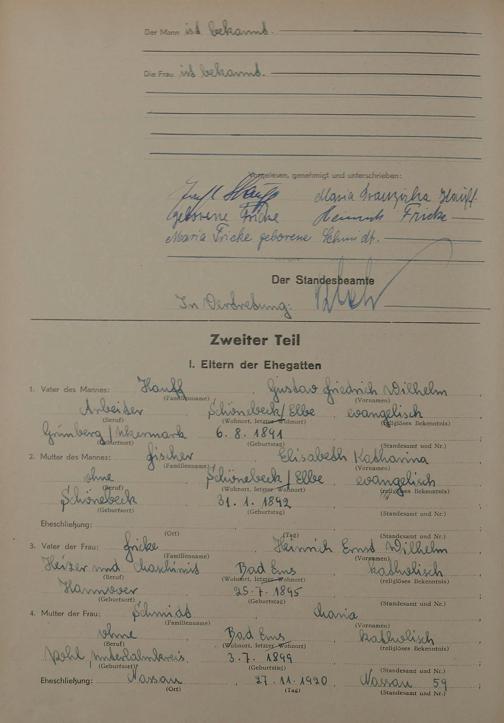 Der Mann ist bekannt.
Die Frau ist bekannt.
Vorgelesen, genehmigt und unterschrieben:
Hauff Maria Franziska Hauff
geborene Fricke Heinrich Fricke
Maria Fricke geborene Schmidt.
Der Standesbeamte
In Vertretung:
Zweiter Teil
I. Eltern der Ehegatten
1. Vater des Mannes: Hauff Gustav Friedrich Wilhelm
(Familienname) (Vornamen)
Arbeiter Schönebeck/Elbe evangelisch
(Beruf) (Wohnort, letzter Wohnort) (religiöses Bekenntnis)
Grünberg/Uckermark 6.8.1891
(Geburtsort) (Geburtstag) (Standesamt und Nr.)
2. Mutter des Mannes: Fischer Elisabeth Katharina
(Familienname) (Vornamen)
ohne Schönebeck/Elbe evangelisch
(Beruf) (Wohnort, letzter Wohnort) (religiöses Bekenntnis)
Schönebeck 31.1.1892
(Geburtsort) (Geburtstag) (Standesamt und Nr.)
Eheschließung:
(Ort) (Tag) (Standesamt und Nr.)
3. Vater der Frau: Fricke Heinrich Ernst Wilhelm
(Familienname) (Vornamen)
Heizer und Maschinist Bad Ems katholisch
(Beruf) (Wohnort, letzter Wohnort) (religiöses Bekenntnis)
Hannover 25.7.1895
(Geburtsort) (Geburtstag) (Standesamt und Nr.)
4. Mutter der Frau: Schmidt Maria
(Familienname) (Vornamen)
ohne Bad Ems katholisch
(Beruf) (Wohnort, letzter Wohnort) (religiöses Bekenntnis)
Pohl, Unterlahnkreis 3.7.1899
(Geburtsort) (Geburtstag) (Standesamt und Nr.)
Eheschließung: Nassau 27.11.1920 Nassau 59
(Ort) (Tag) (Standesamt und Nr.)